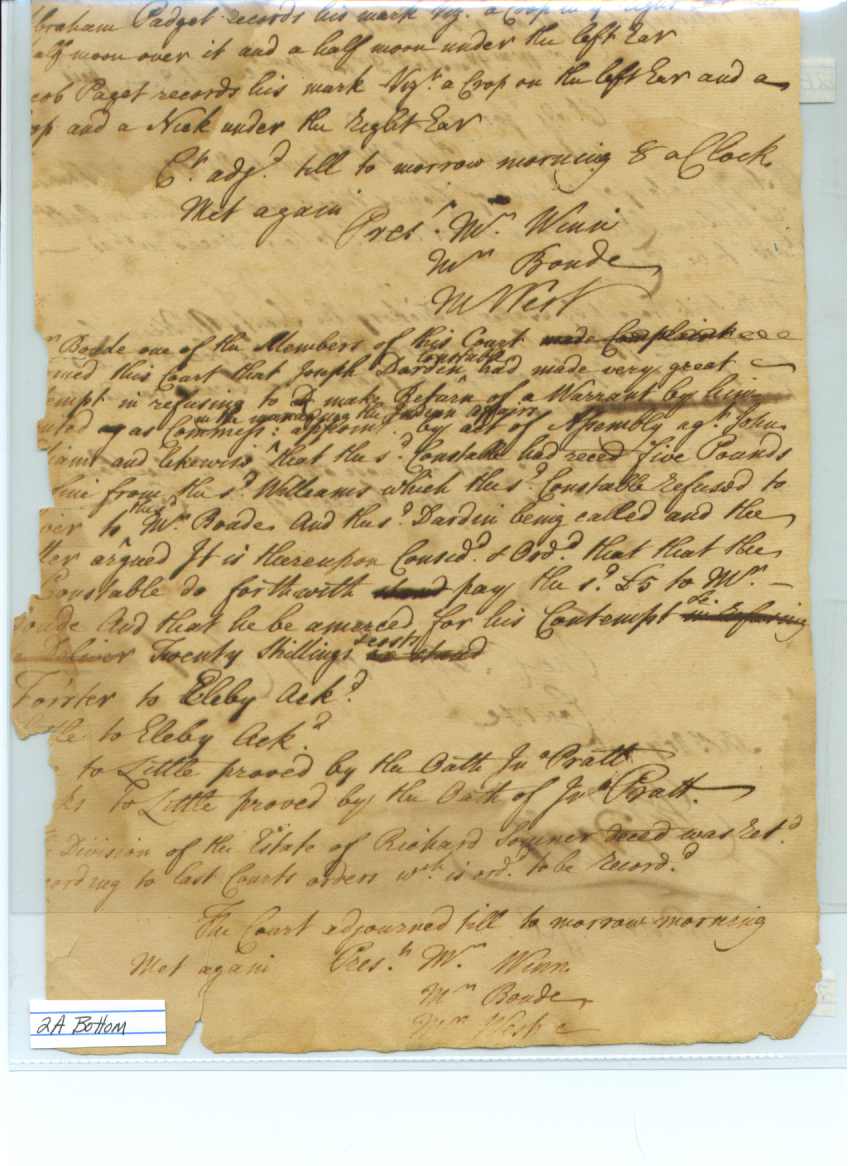 braham Padget records his mark Viz. a Crop in y right Ear
alf moon over it and a half moon under the left Ear
cob Paget records his mark Vizt. a Crop on the left Ear and a
op and a Nick under the Right Ear
Ct. adjd. till to morrow morning 8 a Clock
Met again
Prest. Mr. Winn
Mr Boude
M West
r Boude one of the Members of this Court made Complaint
med this Court that Joseph Dardin Constable had made very great
empt in refusing to make Return of a Warrant by him
in the managing the Indian affairs
ued as Commiss: appoint. by act of Assembly agt. John
liams and likewise that the sd. Constable had reced five Pounds
ine from the sd. Williams which the sd. Constable refused to
iver to the Mr. Boude And the sd. Dardin being called and the
tter argued It is thereupon Considd. & Ordd. that that the
Constable do forthwith stand pay the sd. £5 to Mr.
oude And that he be amerced for his Contempt in refusing
Deliver Twenty Shillings & costs or stand
Forster to Eleby Ackd.
ttle to Eleby Ackd.
to Little proved by the Oath Jno Pratt
ks to Little proved by the Oath of Jno Pratt.
Division of the Estate of Richard Sumner deced was Retd.
cording to last Courts orders wch. is ordd. to be Recordd.
The Court adjourned till to morrow morning
Met again Prest. Mr. Winn
Mr Boude
Mr West
2A Bottom